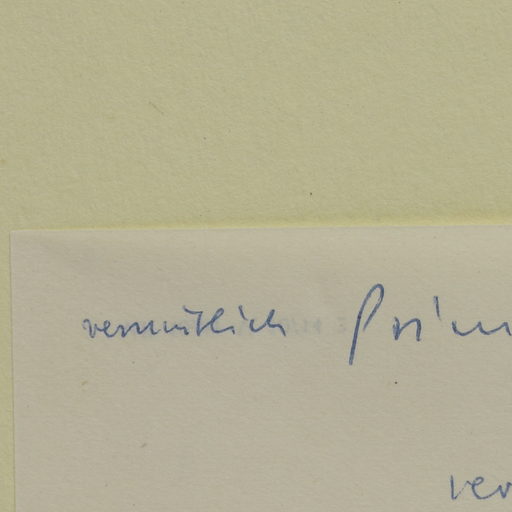 vermutlich Prim
ver